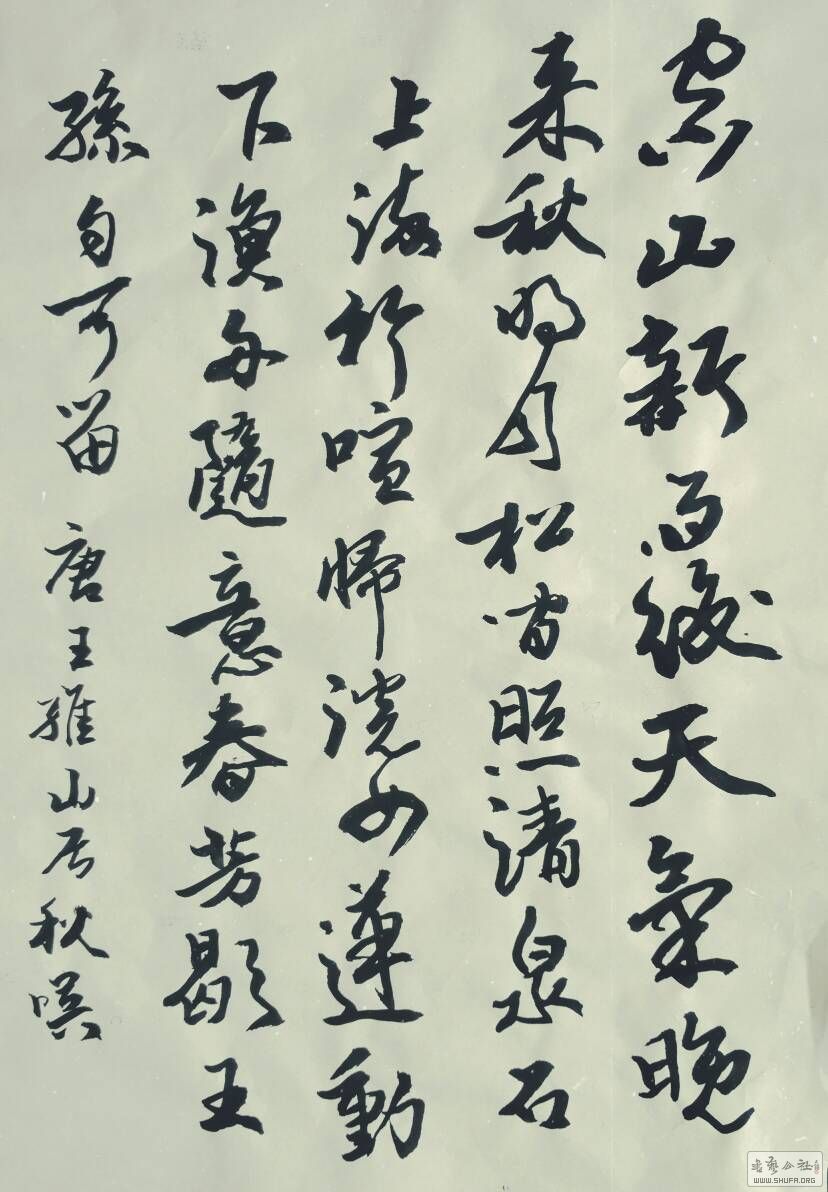 空山新雨後天氣晚
来秋明月松間照清泉石
上流竹喧歸浣女蓮動
下漁舟隨意春芳歇王
孫自可留 唐王維山居秋暝
書藝公社
WWW.SHUFA.ORG